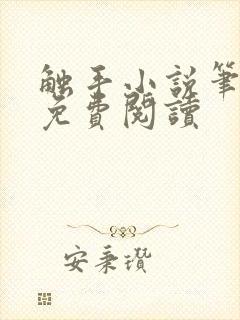 触手小说笔
免費閱讀
安秉瓚